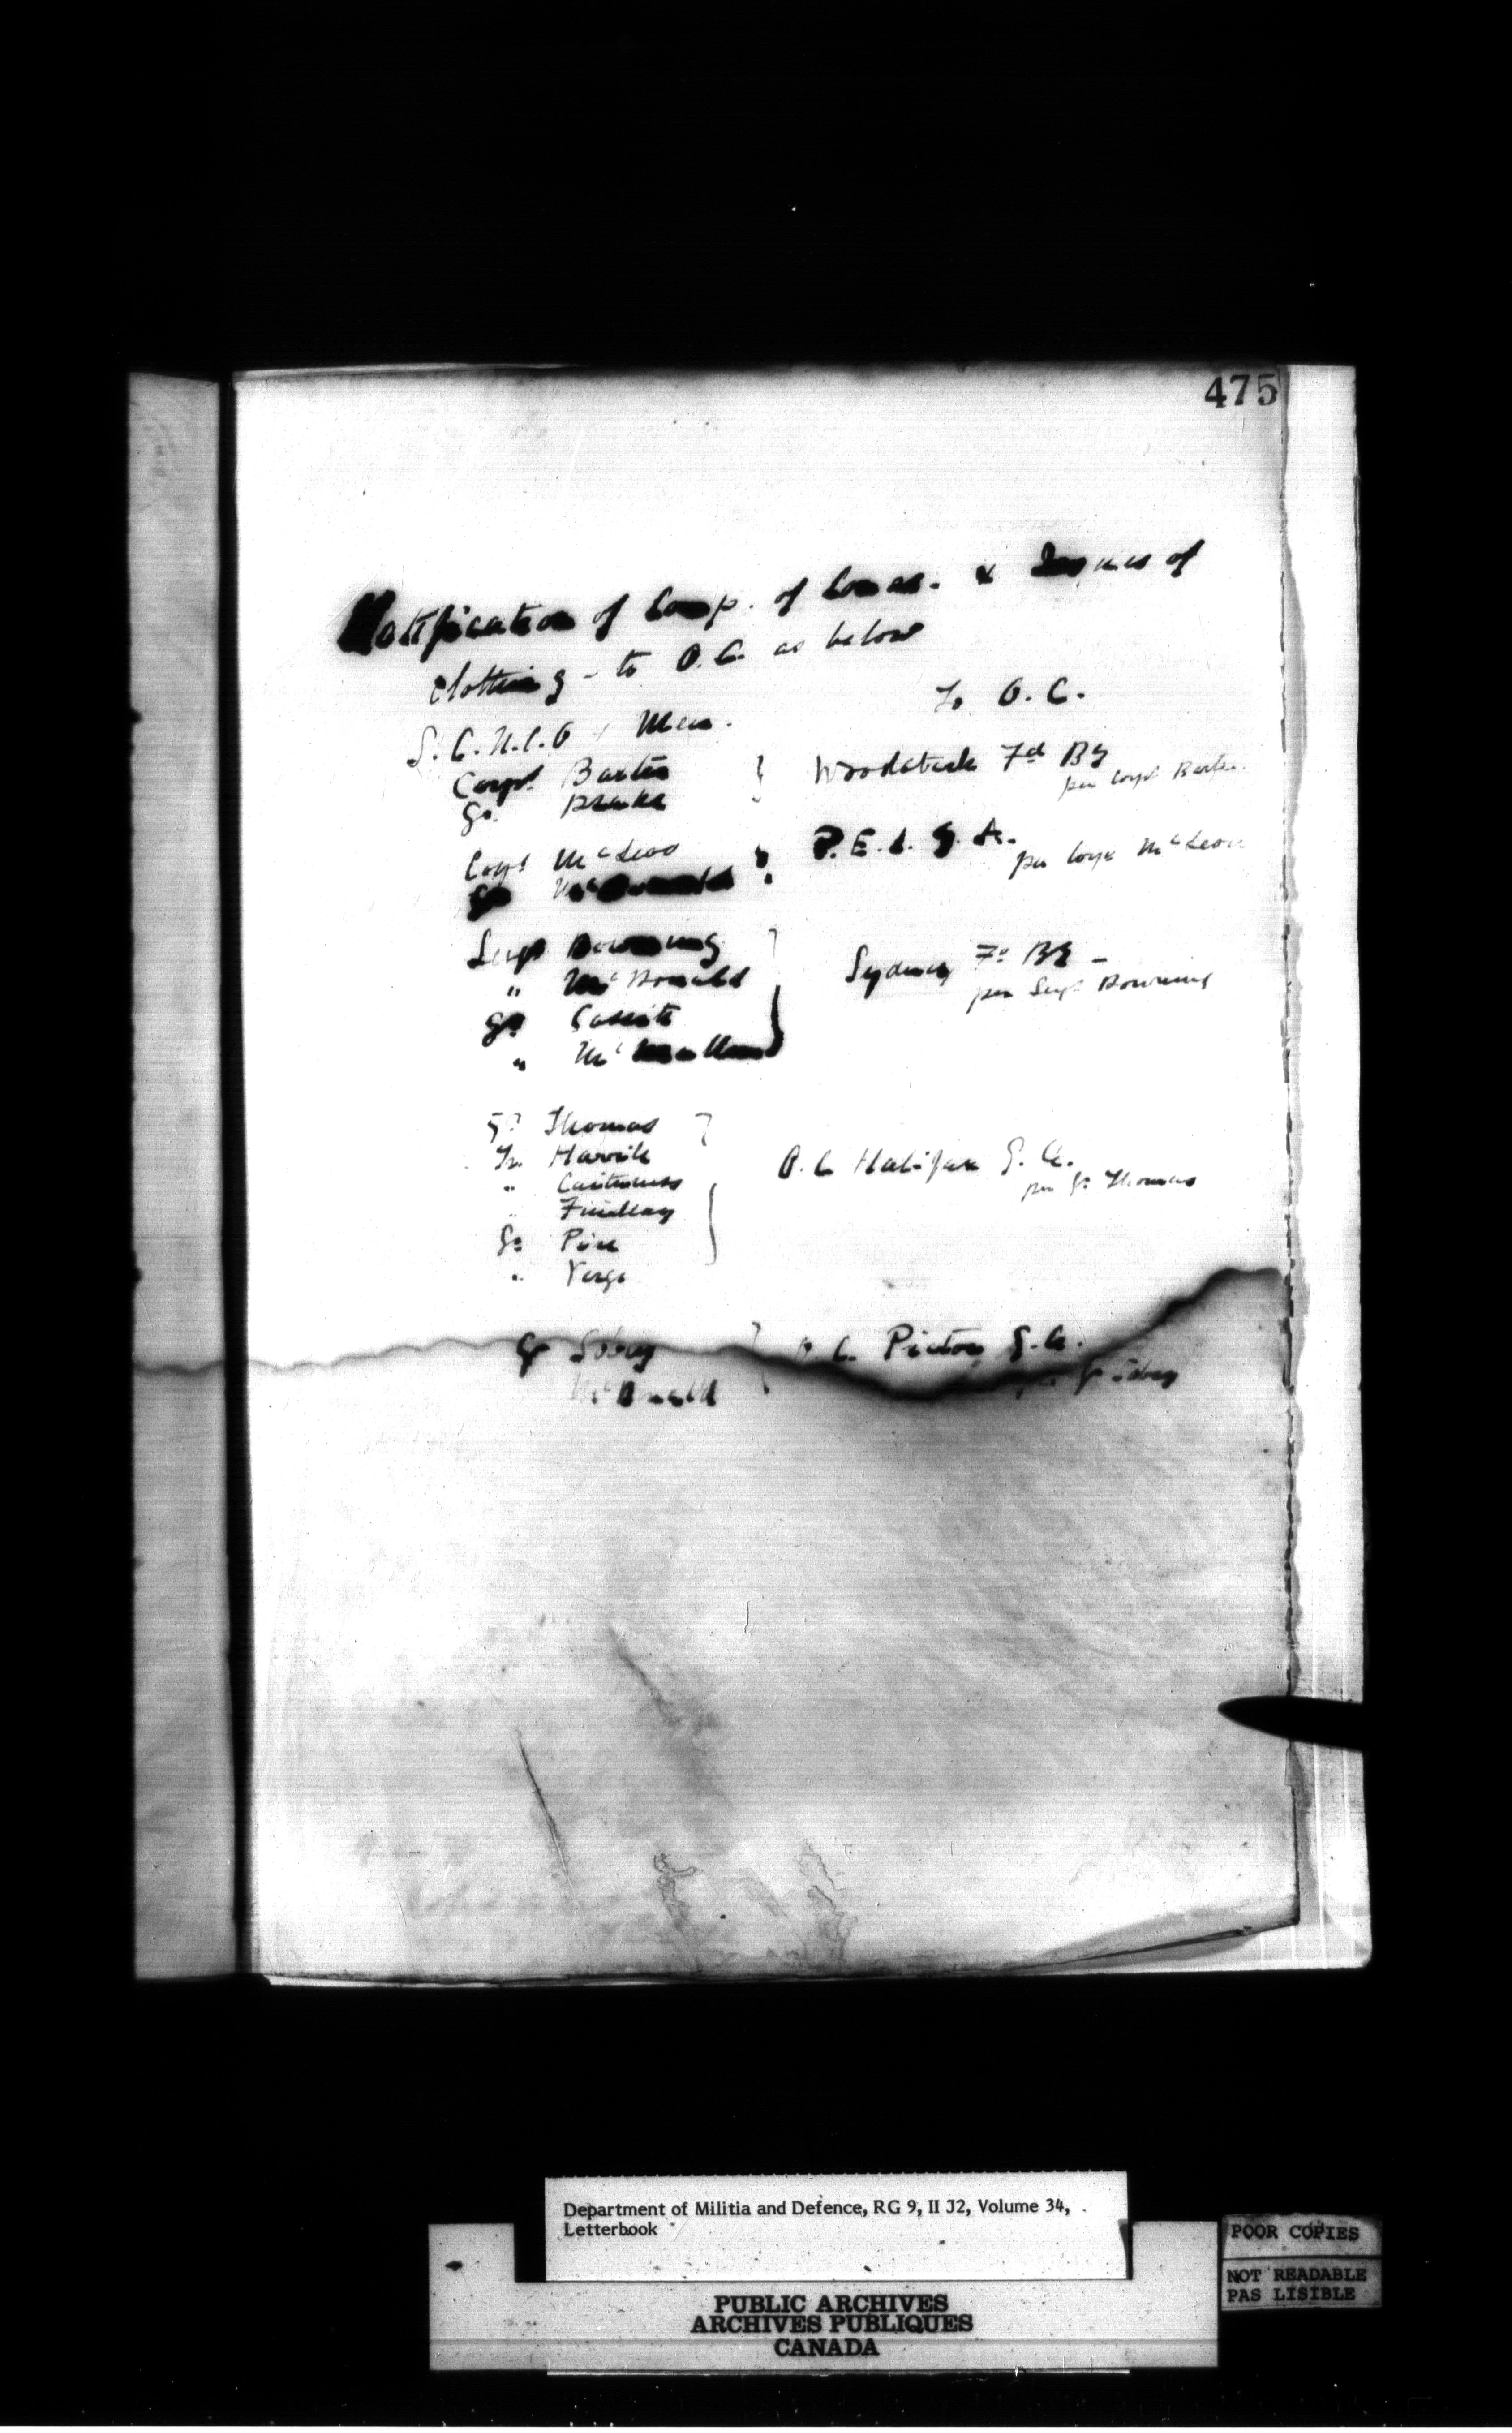 475
Notification of Comp. of Course. & Issues of
clothing - to O.C. as below
S.C. N.C.O & Men. To O.C.
Corpl Baxter Woodstock Fd By
Gr. Drake per Corpl Baxter
Corpl McLeod P.E.I. G.A.
Gr McDonald per Corpl McLeod
Sergt Downing
" McDonald Sydney Fd By -
Gr per Sergt Downing
" Mc
Gr Thomas
Tr. O.C. Halifax G.A.
" per Gr Thomas
" Findlay
Gr
"
Gr Sobey O.C. Pictou G.A.
McDonald per Gr Sobey
Department of Militia and Defence, RG 9, II J2, Volume 34,
Letterbook
PUBLIC ARCHIVES
ARCHIVES PUBLIQUES
CANADA
POOR COPIES
NOT READABLE
PAS LISIBLE